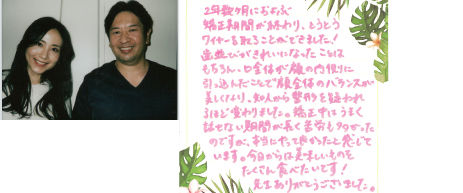 2年数ヶ月におよぶ
矯正期間が終わり、とうとう
ワイヤーを取ることができました!
歯並びがきれいになったことは
もちろん、口全体が顔の内側に
引っ込んだことで顔全体のバランスが
美しくなり、知人から整形を疑われ
るほど変わりました。矯正中はうまく
話せない期間が長く苦労も多かった
のですが、本当にやって良かったと感じて
います。今日からは美味しいものを
たくさん食べたいです!
先生ありがとうございました。